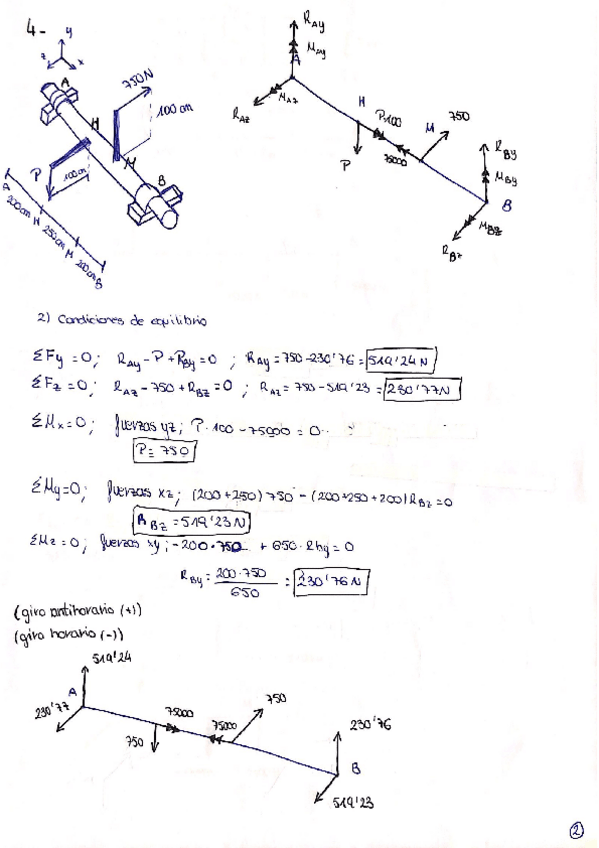 4-
y
z
x
A
750N
100cm
H
P
100cm
M
B
A
200cm
H
250cm
M
200cm
B
RAy
MAy
A
RAz
MAz
H
P·100
M
750
75000
P
RBy
MBy
B
RBz
MBz
2) Condiciones de equilibrio
ΣFy = 0; RAy - P + RBy = 0 ; RAy = 750 - 230'76 = 519'24 N
ΣFz = 0; RAz - 750 + RBz = 0 ; RAz = 750 - 519'23 = 230'77 N
ΣMx = 0; fuerzas yz; P·100 - 75000 = 0
P = 750
ΣMy = 0; fuerzas xz; (200+250) 750 - (200+250+200) RBz = 0
RBz = 519'23 N
ΣMz = 0; fuerzas xy; -200·750 + 650· = 0
RBy = 200·750 / 650 = 230'76 N
(giro antihorario (+))
(giro horario (-))
519'24
A
230'77
75000
75000
750
750
230'76
B
519'23
2